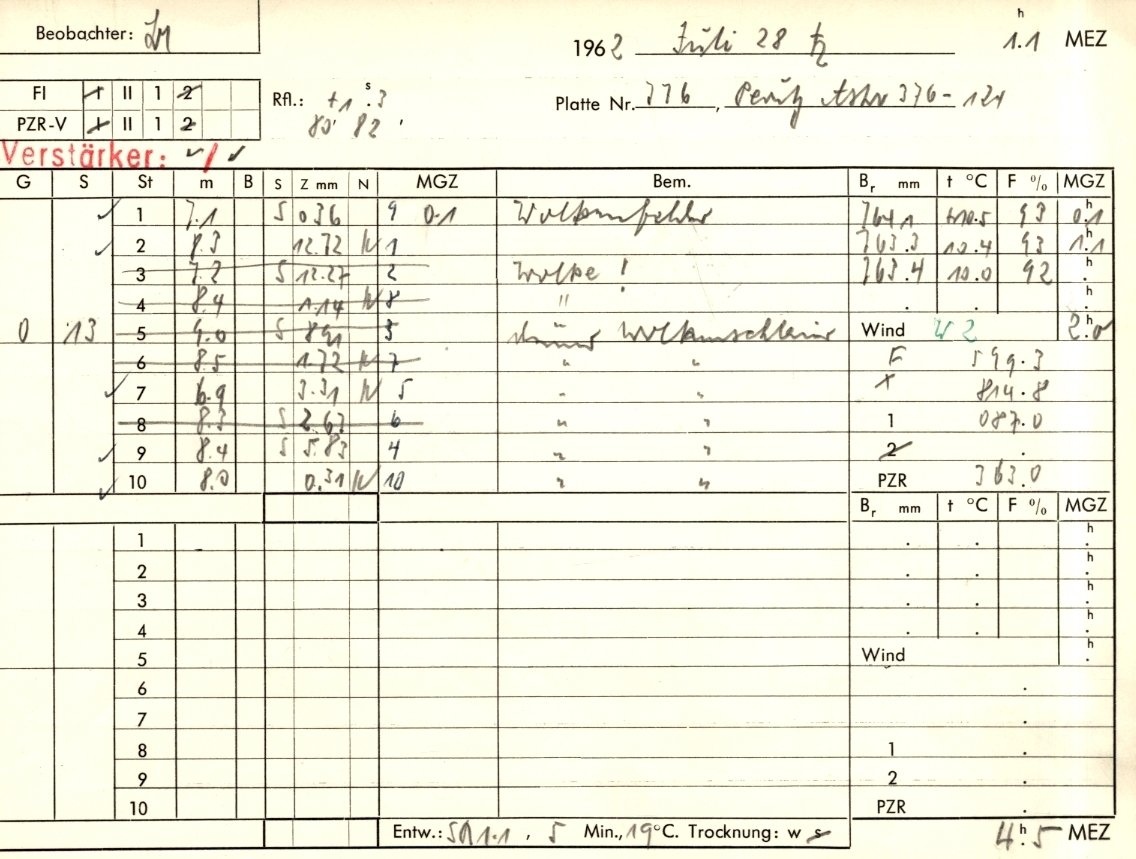 Beobachter:
1962 Juli 28 1.1 h MEZ
FI I II 1 2
PZR-V I II 1 2
Rfl.: +1 s .3
Platte Nr. 776, Perutz Astro 376-124
Verstärker:
G S St m B S Z mm N MGZ Bem. Br mm t °C F % MGZ
1 7.1 S 0.36 9 0.1 Wolkenfelder 764.1 +10.5 93 0.1 h
2 8.3 12.72 N 1 763.3 10.4 93 1.1 h
3 7.2 S 12.27 2 Wolke ! 763.4 10.0 92 . h
4 8.4 1.14 N 8 " . . . h
0 13 5 9.0 S 8.91 3 Wolkenschleier Wind W 2 2.0 h
6 8.5 1.72 N 7 " " F 599.3
7 6.9 3.31 N 5 " " X 814.8
8 8.3 S 2.63 6 " " 1 087.0
9 8.4 S 5.83 4 " " 2 .
10 8.0 0.31 N 10 " " PZR 363.0
Br mm t °C F % MGZ
1 . . . h
2 . . . h
3 . . . h
4 . . . h
5 Wind . h
6 .
7 .
8 1 .
9 2 .
10 PZR .
Entw.: 1.1, 5 Min., 19 °C. Trocknung: w s 4.5 h MEZ